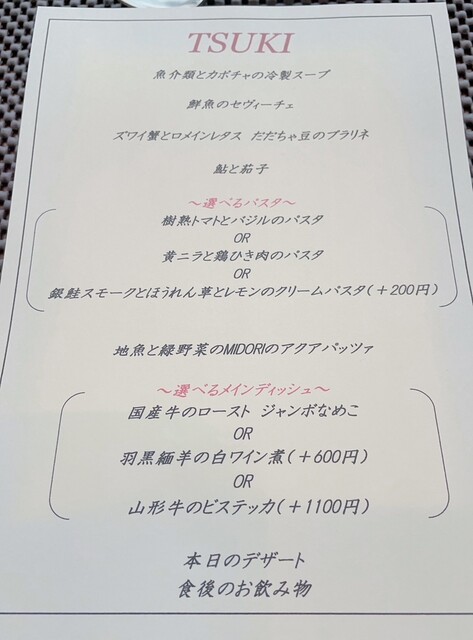 TSUKI
魚介類とカボチャの冷製スープ
鮮魚のセヴィーチェ
ズワイ蟹とロメインレタス だだちゃ豆のプラリネ
鮎と茄子
～選べるパスタ～
樹熟トマトとバジルのパスタ
OR
黄ニラと鶏ひき肉のパスタ
OR
銀鮭スモークとほうれん草とレモンのクリームパスタ(+200円)
地魚と緑野菜のMIDORIのアクアパッツァ
～選べるメインディッシュ～
国産牛のロースト ジャンボなめこ
OR
羽黒緬羊の白ワイン煮(+600円)
OR
山形牛のビステッカ(+1100円)
本日のデザート
食後のお飲み物